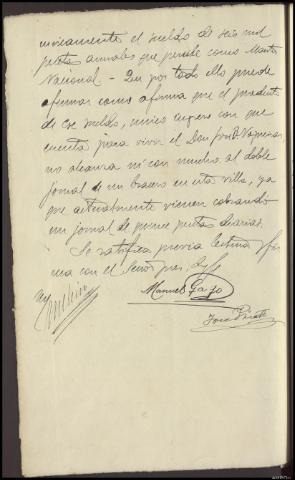 unicamente el sueldo de seis mil
pesetas anuales que percibe como Maestro
Nacional - Que por todo ello puede
afirmar como afirma que el producto
de ese sueldo, unico ingreso con que
cuenta para vivir el Don
no alcanza ni con mucho al doble
jornal de un bracero en esta villa, ya
que actualmente vienen cobrando
un jornal de quince pesetas diarias.
Se ratifica previa lectura y fir
ma con el Señor Juez, doy fe
Manuel Gazo
Jose